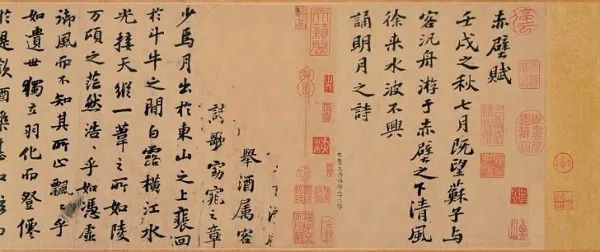 赤壁賦
壬戌之秋七月既望蘇子與
客汎舟游于赤壁之下清風
徐来水波不興
誦明月之詩
舉酒属客
歌窈窕之章
少焉月出於東山之上裵回
於斗牛之間白露横江水
光接天縱一葦之所如陵
万頃之茫然浩〻乎如憑虚
御風而不知其所止飄〻乎
如遺世獨立羽化而登僊
於是飲酒樂甚